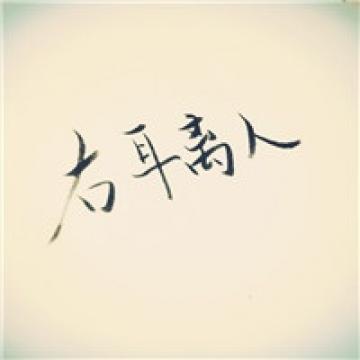 右耳离人